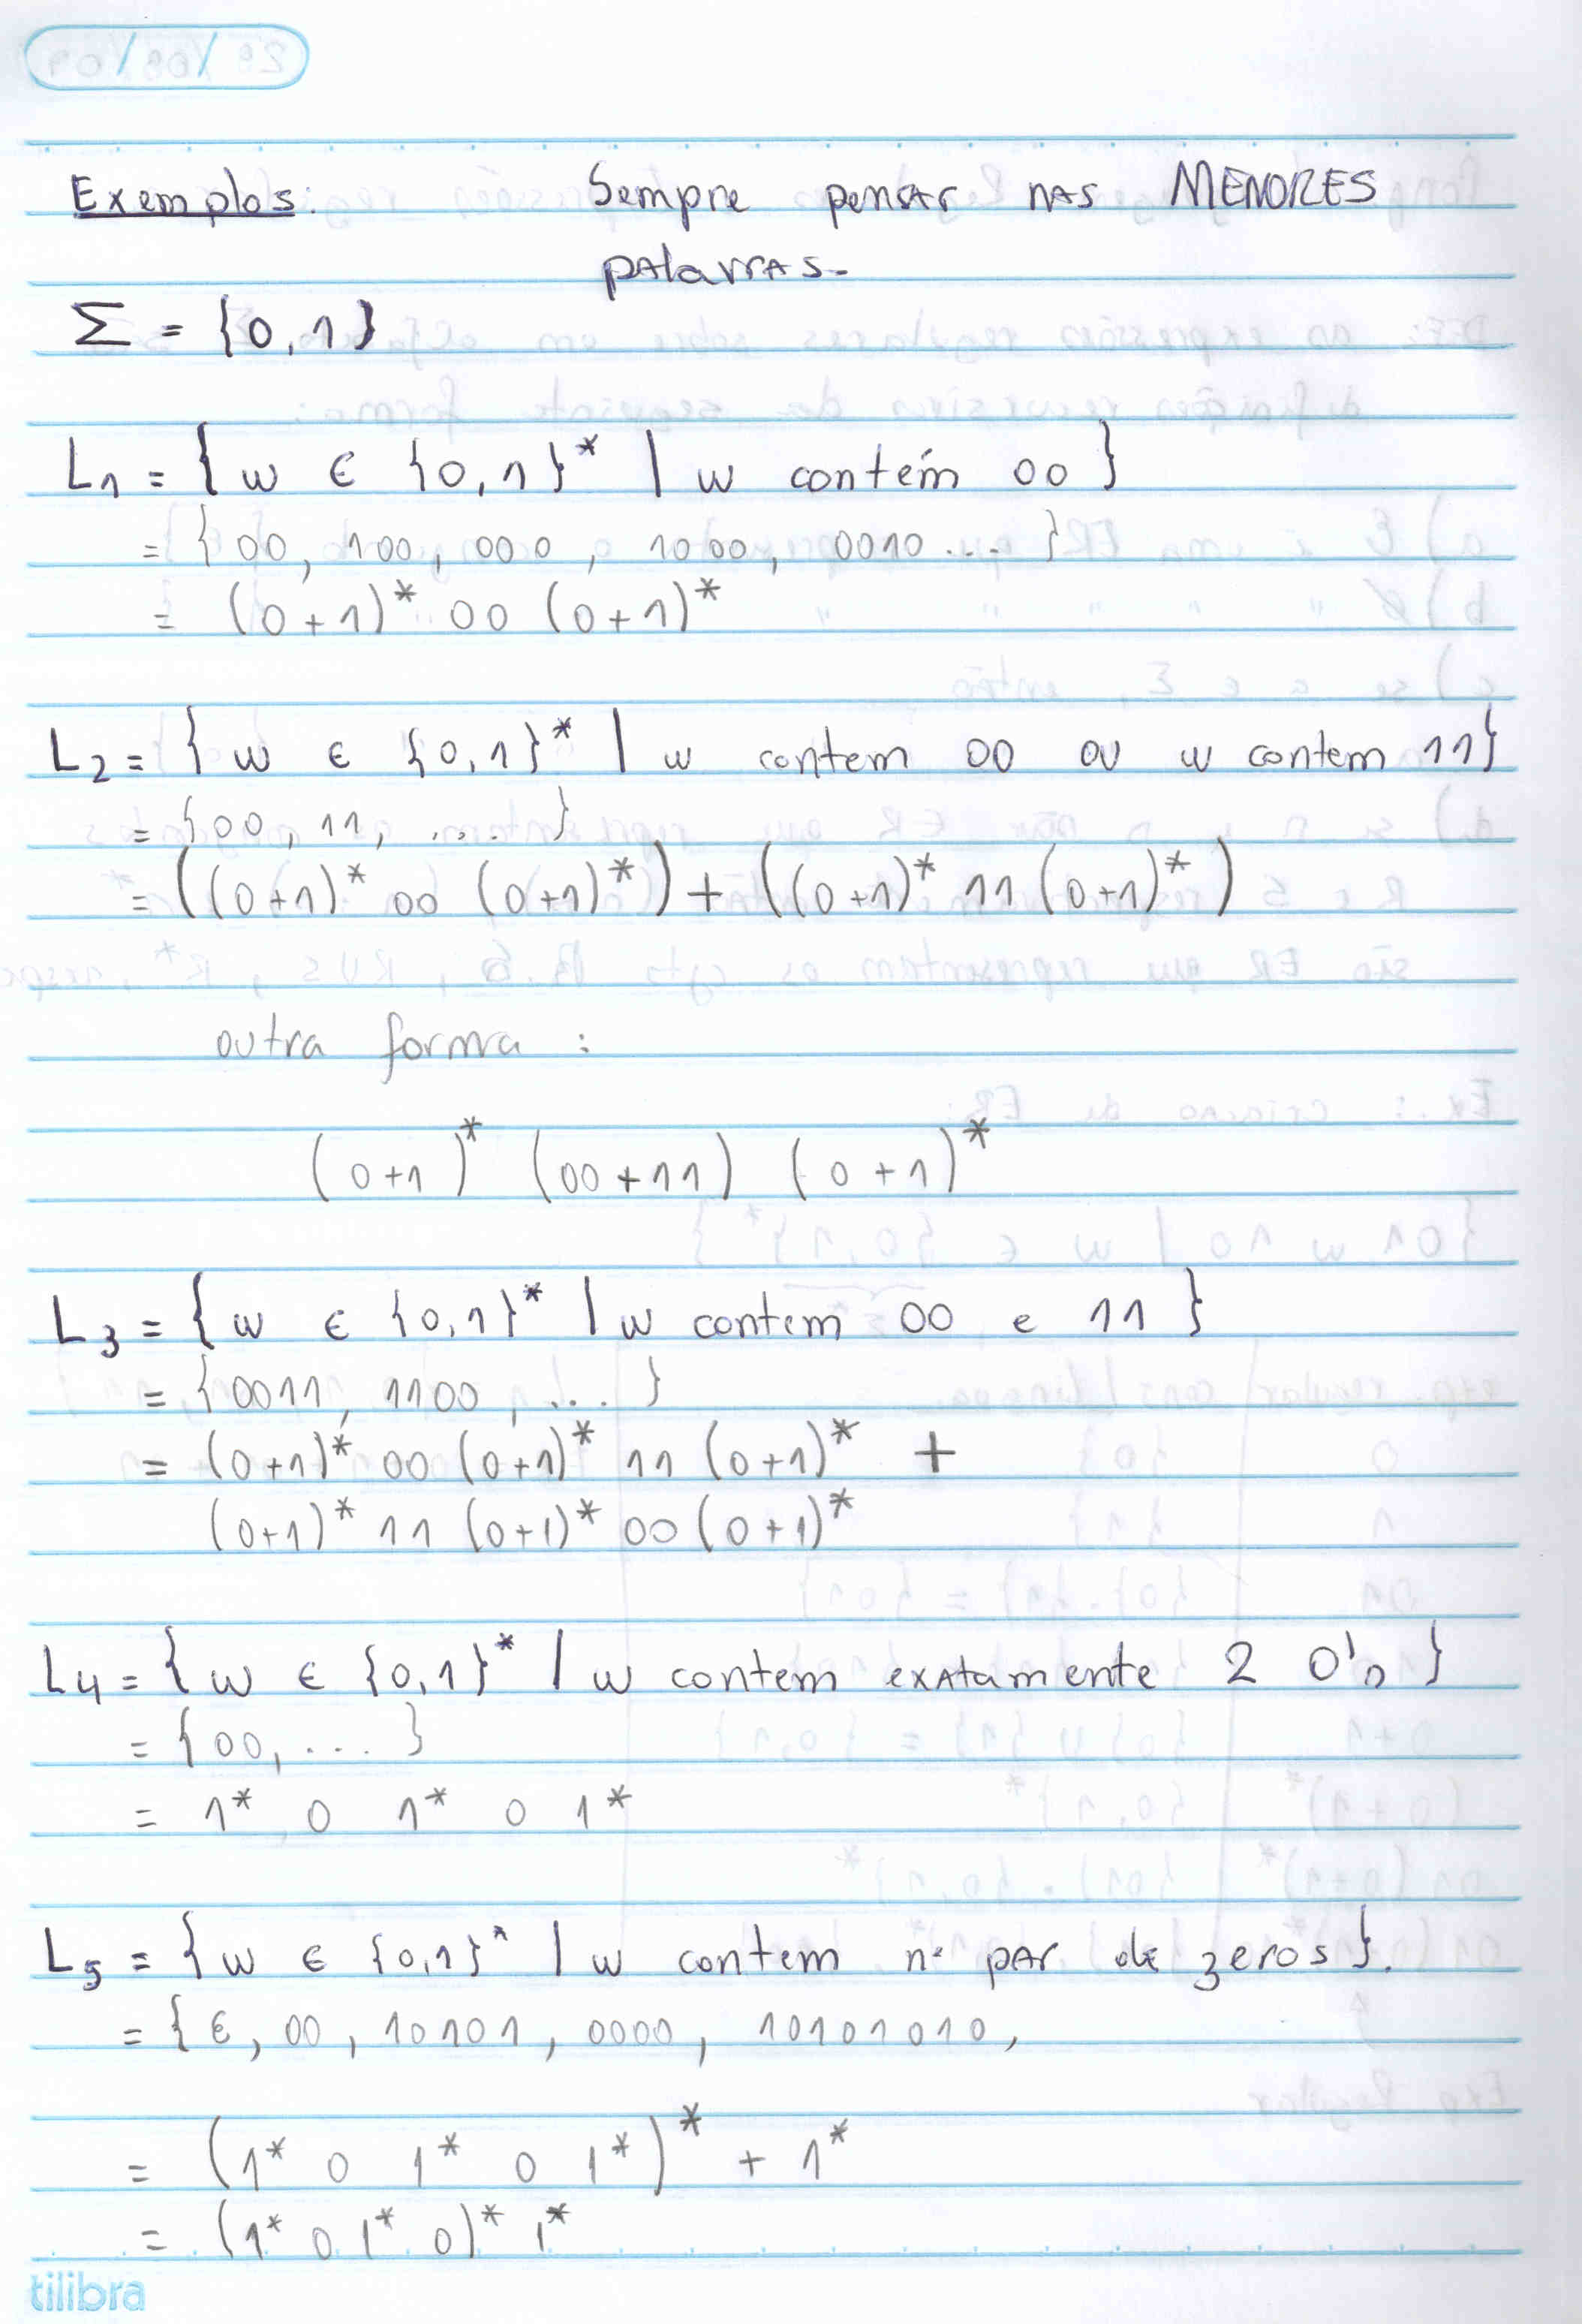 Exemplos: Sempre pensar nas MENORES
palavras.
Σ = {0,1}
L1 = { w ∈ {0,1}* | w contém 00 }
= { 00, 100, 000, 1000, 0010 ... }
= (0+1)* 00 (0+1)*
L2 = { w ∈ {0,1}* | w contem 00 ou w contem 11}
= {00, 11, ... }
= ((0+1)* 00 (0+1)*) + ((0+1)* 11 (0+1)*)
outra forma :
(0+1)* (00+11) (0+1)*
L3 = { w ∈ {0,1}* | w contem 00 e 11 }
= {0011, 1100, ... }
= (0+1)* 00 (0+1)* 11 (0+1)* +
(0+1)* 11 (0+1)* 00 (0+1)*
L4 = { w ∈ {0,1}* | w contem exatamente 2 0's }
= {00, ... }
= 1* 0 1* 0 1*
L5 = { w ∈ {0,1}* | w contem nº par de zeros }.
= { ε, 00, 10101, 0000, 10101010,
= (1* 0 1* 0 1*)* + 1*
= (1* 0 1* 0)* 1*
tilibra